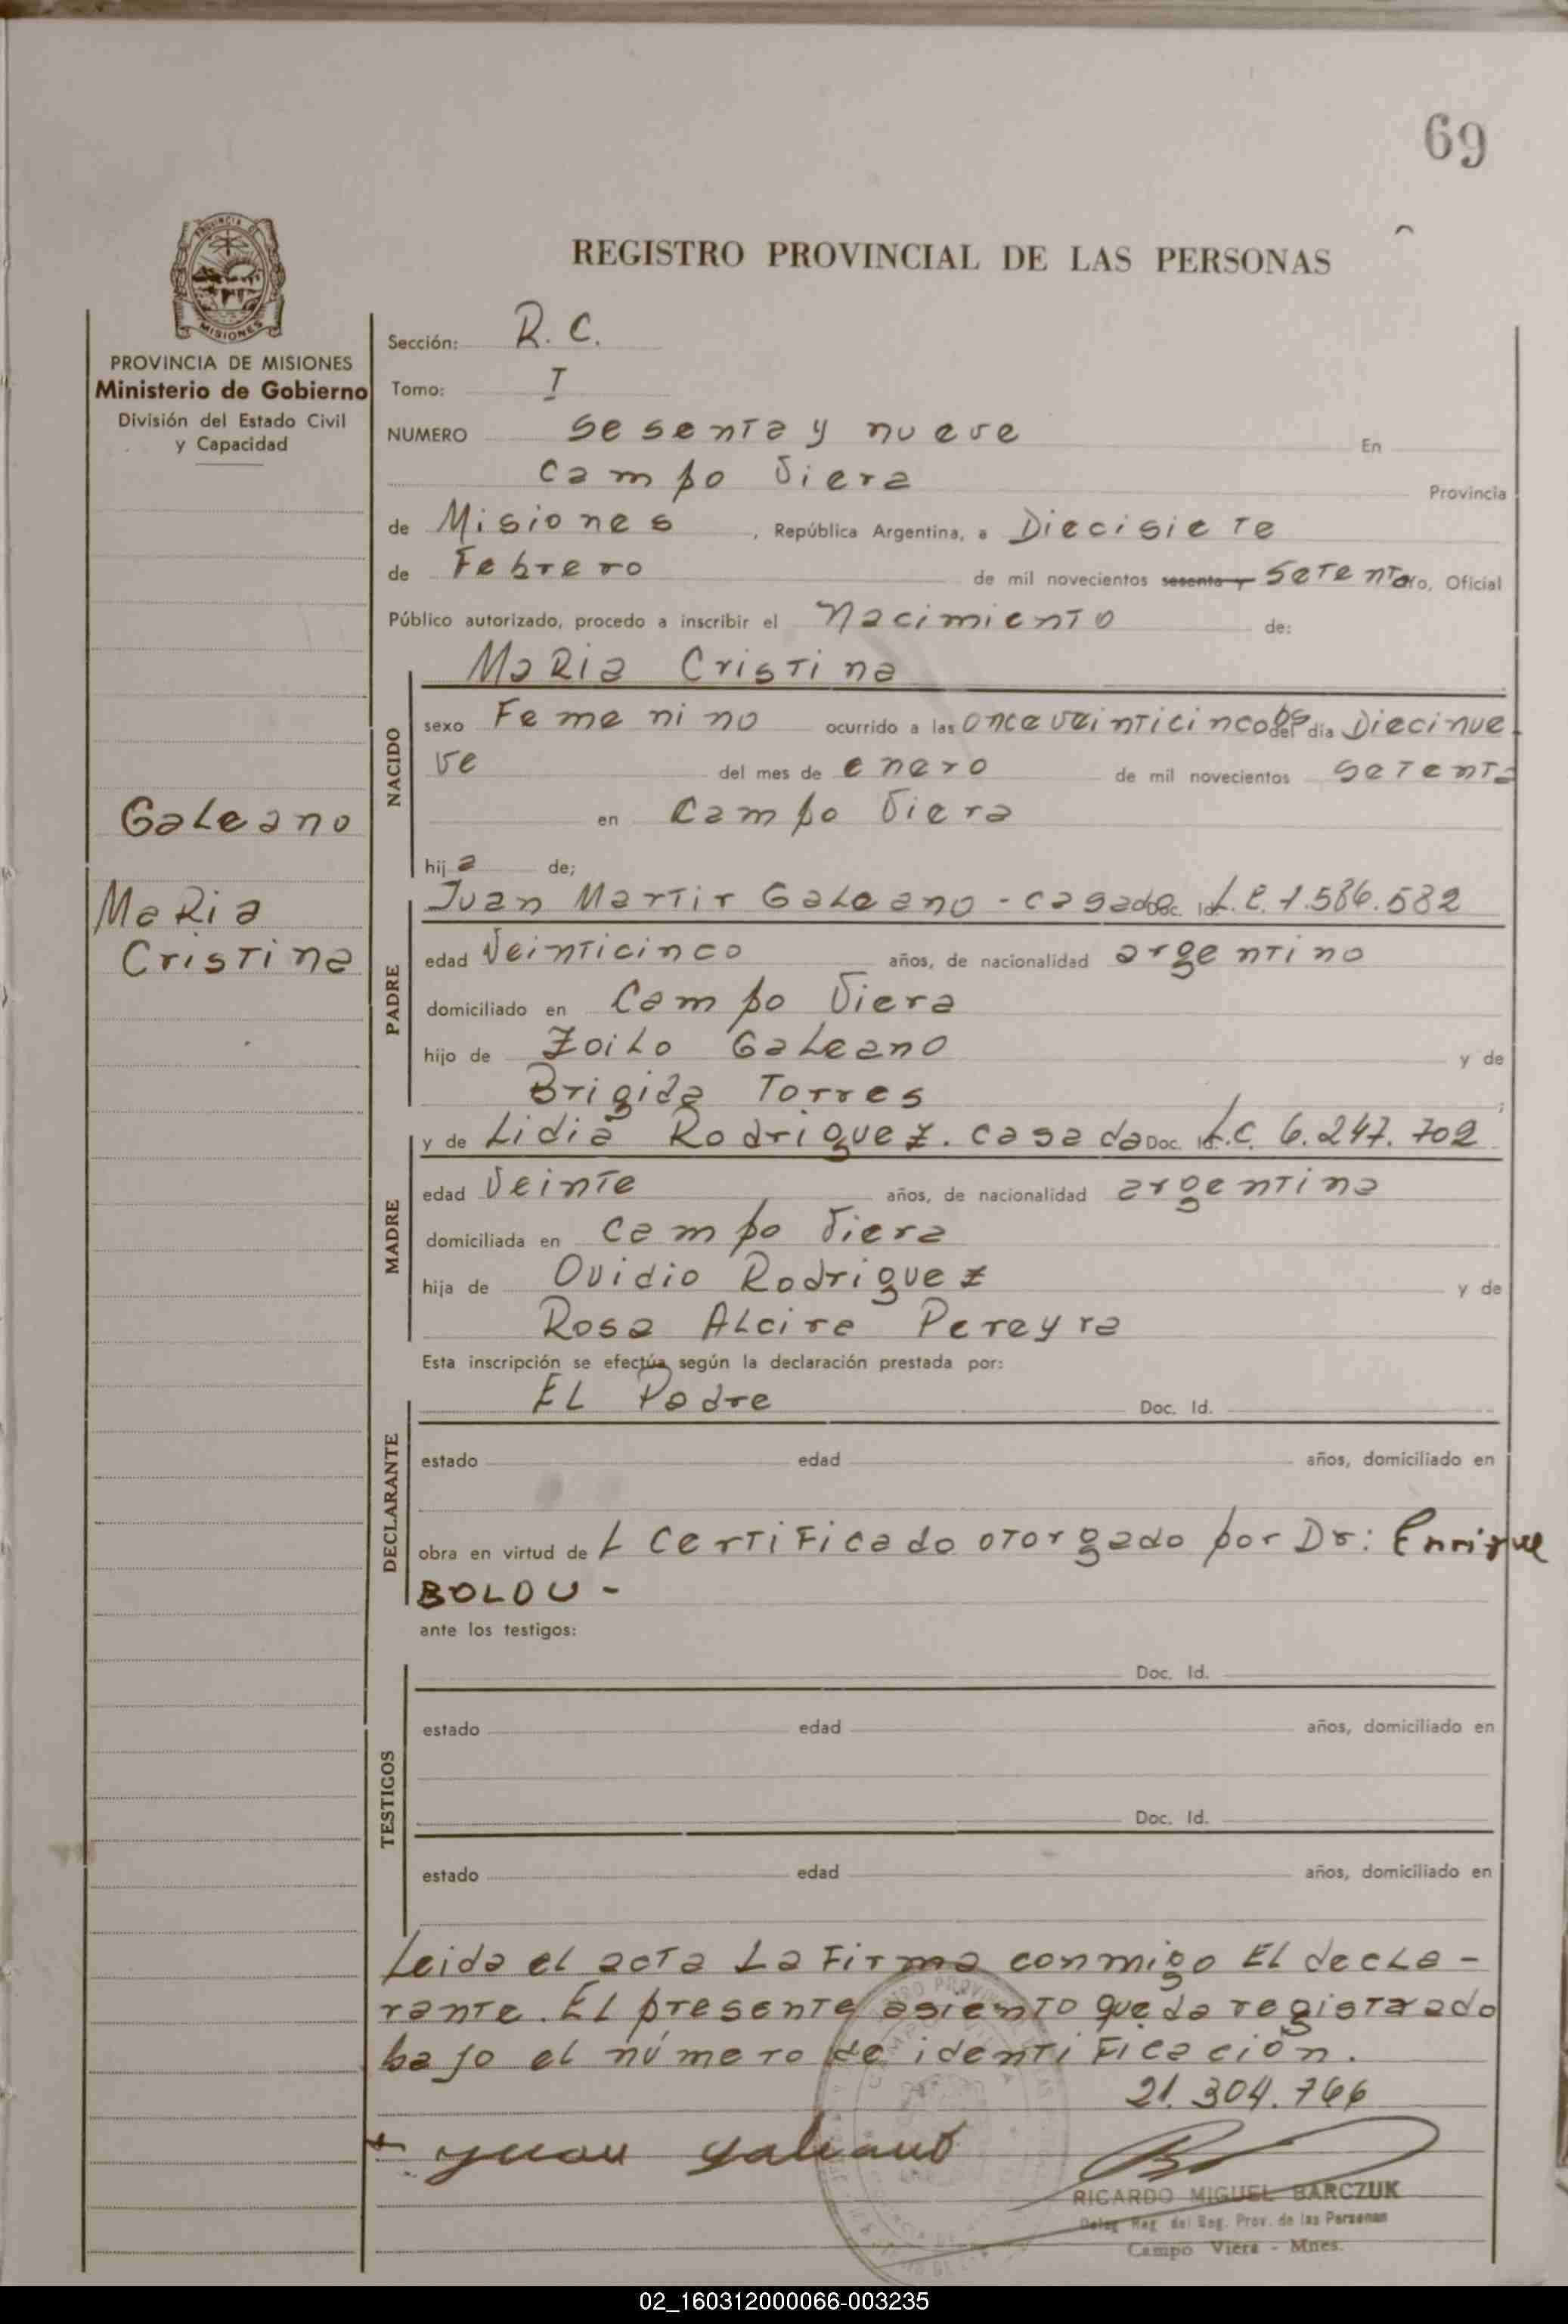 69
REGISTRO PROVINCIAL DE LAS PERSONAS
PROVINCIA DE MISIONES
Ministerio de Gobierno
División del Estado Civil
y Capacidad
Galeano
Maria
Cristina
Sección: R. C.
Tomo: I
NUMERO sesenta y nueve En
Campo Viera Provincia
de Misiones, República Argentina, a Diecisiete
de Febrero de mil novecientos sesenta y Setenta, Oficial
Público autorizado, procedo a inscribir el Nacimiento de:
Maria Cristina
NACIDO
sexo Femenino ocurrido a las once veinticinco hs del día Diecinue-
ve del mes de enero de mil novecientos setenta
en Campo Viera
hija de;
PADRE
Juan Martir Galeano - casado Doc. Id. L.E. 1.586.582
edad Veinticinco años, de nacionalidad argentino
domiciliado en Campo Viera
hijo de Zoilo Galeano y de
Brigida Torres
MADRE
y de Lidia Rodriguez. casada Doc. Id. L.C. 6.247.702
edad Veinte años, de nacionalidad argentina
domiciliada en Campo Viera
hija de Ovidio Rodriguez y de
Rosa Alcira Pereyra
Esta inscripción se efectúa según la declaración prestada por:
DECLARANTE
El Padre Doc. Id.
estado edad años, domiciliado en
obra en virtud del Certificado otorgado por Dr: Enrique
BOLDU -
ante los testigos:
TESTIGOS
Doc. Id.
estado edad años, domiciliado en
Doc. Id.
estado edad años, domiciliado en
Leida el acta La Firma conmigo El decla-
rante. El presente asiento queda registrado
bajo el número de identificación.
21.304.766
Juan Galeano
RICARDO MIGUEL BARCZUK
Deleg. Reg. del Reg. Prov. de las Personas
Campo Viera - Mnes.
02_160312000066-003235